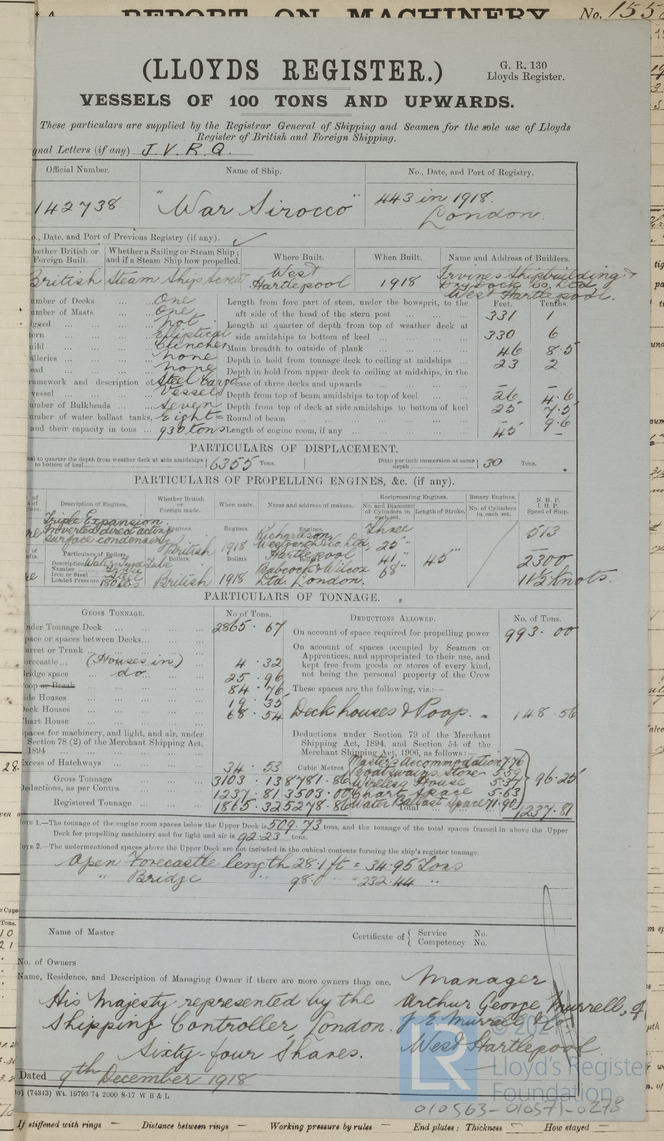 REPORT ON MACHINERY No. 155
(LLOYDS REGISTER.)
G. R. 130
Lloyds Register.
VESSELS OF 100 TONS AND UPWARDS.
These particulars are supplied by the Registrar General of Shipping and Seamen for the sole use of Lloyds
Register of British and Foreign Shipping.
gnal Letters (if any) J. V. R. Q.
Official Number. Name of Ship. No., Date, and Port of Registry.
142738 "War Sirocco" 443 in 1918.
London.
o., Date, and Port of Previous Registry (if any).
hether British or Foreign Built. Whether a Sailing or Steam Ship; and if a Steam Ship how propelled. Where Built. When Built. Name and Address of Builders.
British Steam Ship Screw West Hartlepool 1918 Irvine's Shipbuilding & Dry Dock Co. Ltd. West Hartlepool.
Feet. Tenths.
umber of Decks One Length from fore part of stem, under the bowsprit, to the
umber of Masts One aft side of the head of the stern post 331 1
igged not Length at quarter of depth from top of weather deck at
ern Elliptical side amidships to bottom of keel 330 6
uild Clincher Main breadth to outside of plank 46 8.5
alleries none Depth in hold from tonnage deck to ceiling at midships 23 2
ead none Depth in hold from upper deck to ceiling at midships, in the
ramework and description of Steel Cargo case of three decks and upwards
vessel Vessels Depth from top of beam amidships to top of keel 26 4.6
umber of Bulkheads Seven Depth from top of deck at side amidships to bottom of keel 25 7.5
umber of water ballast tanks, Eight = Round of beam 9.6
and their capacity in tons 930 tons Length of engine room, if any 45 -
PARTICULARS OF DISPLACEMENT.
al to quarter the depth from weather deck at side amidships to bottom of keel 6355 Tons. Ditto per inch immersion at same depth 30 Tons.
PARTICULARS OF PROPELLING ENGINES, &c. (if any).
Description of Engines. Whether British or Foreign made. When made. Name and address of makers. Reciprocating Engines. Rotary Engines. N. H. P.
No. and Diameter of Cylinders in each set. Length of Stroke. No. of Cylinders in each set. I. H. P. Speed of Ship.
Triple Expansion Inverted direct acting surface condensing
Engines. British Engines. 1918 Engines. Richardsons Westgarth & Co. Ltd. Hartlepool Three 25" 41" 68" 45" 513
Particulars of Boilers.
Description Water Tube
Number Three
Iron or Steel Steel
Loaded Pressure 180 lbs
British Boilers 1918 Boilers Babcock & Wilcox Ltd. London. 2300
11½ knots.
PARTICULARS OF TONNAGE.
GROSS TONNAGE. No. of Tons. DEDUCTIONS ALLOWED. No. of Tons.
nder Tonnage Deck 2865.67 On account of space required for propelling power 993.00
pace or spaces between Decks
urret or Trunk
orecastle (Houses in) 4.32
ridge space do 25.96
oop or Break 84.76
ide Houses 19.35
eck Houses 68.54
hart House
On account of spaces occupied by Seamen or Apprentices, and appropriated to their use, and kept free from goods or stores of every kind, not being the personal property of the Crew
These spaces are the following, viz.:—
Deck houses & Poop. 148.56
paces for machinery, and light, and air, under Section 78 (2) of the Merchant Shipping Act, 1894
Deductions under Section 79 of the Merchant Shipping Act, 1894, and Section 54 of the Merchant Shipping Act, 1906, as follows:—
xcess of Hatchways 34.53 Cubic Metres Master's Accommodation 7.76
Boatswains Store 5.59
Gross Tonnage 3103.13 8781.86 Wireless House 5.37 96.25
eductions, as per Contra 1237.81 3503.00 Chart Space 5.63
Registered Tonnage 1865.32 5278.86 Water Ballast Space 71.90
Total 1237.81
OTE 1.—The tonnage of the engine room spaces below the Upper Deck is 509.73 tons, and the tonnage of the total spaces framed in above the Upper
Deck for propelling machinery and for light and air is 92.23 tons.
OTE 2.—The undermentioned spaces above the Upper Deck are not included in the cubical contents forming the ship's register tonnage.
Open Forecastle length 28.1 ft = 34.95 tons
" Bridge " 98.0 " 232.44 "
Name of Master Certificate of Service No.
Competency No.
No. of Owners
Name, Residence, and Description of Managing Owner if there are more owners than one.
His Majesty represented by the
Shipping Controller, London.
Sixty-four Shares.
Manager
Arthur George Murrell, of
J E Murrell
West Hartlepool
Dated 9th December 1918
(74343) Wt. 19793/74 2000 8-17 W B & L
LR
Lloyd's Register
Foundation
010563-010571-0278
If stiffened with rings Distance between rings Working pressure by rules End plates: Thickness How stayed